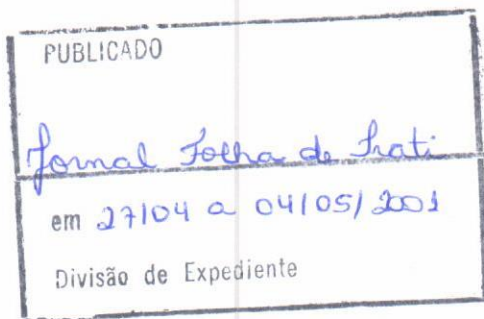 PUBLICADO
Jornal Folha de Irati
em 27/04 a 04/05/2001
Divisão de Expediente